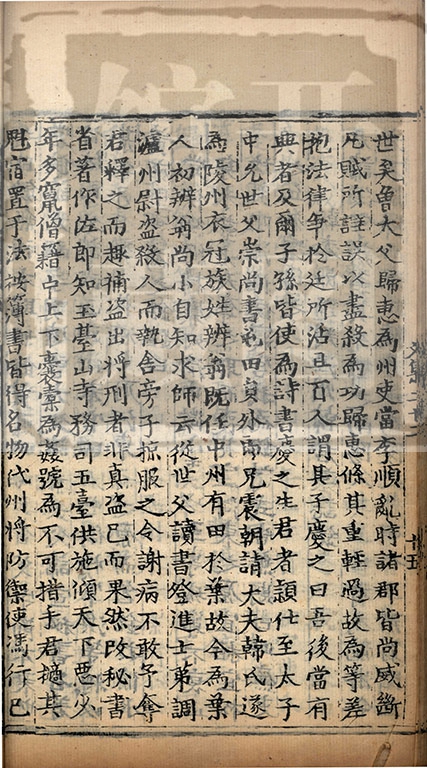 世矣魯大父歸惠為州吏當李順亂時諸郡皆尚威斷
凡賊所詿誤以盡殺為功歸惠條其重輕過故為等差
抱法律爭於廷所沾且百人謂其子慶之曰吾後當有
興者及爾子孫皆使為詩書慶之生君者頴仕至太子
中允世父崇尚書屯田員外郎兄震朝請大夫韓氏遂
為陵州衣冠族姓辨翁既任中州有田於葉故今為葉
人初辨翁尚小自知求師云從世父讀書登進士第調
瀘州尉盜殺人而執舍旁子掠服之令謝病不敢予奪
君釋之而趣捕盜出將刑者非真盜已而果然改秘書
省著作佐郎知五臺山寺務司五臺供施傾天下惡少
年多竄僧籍中上下囊橐為姦號為不可措手君擿其
魁宿置于法按簿書皆得名物代州將防禦使馮行已
十五